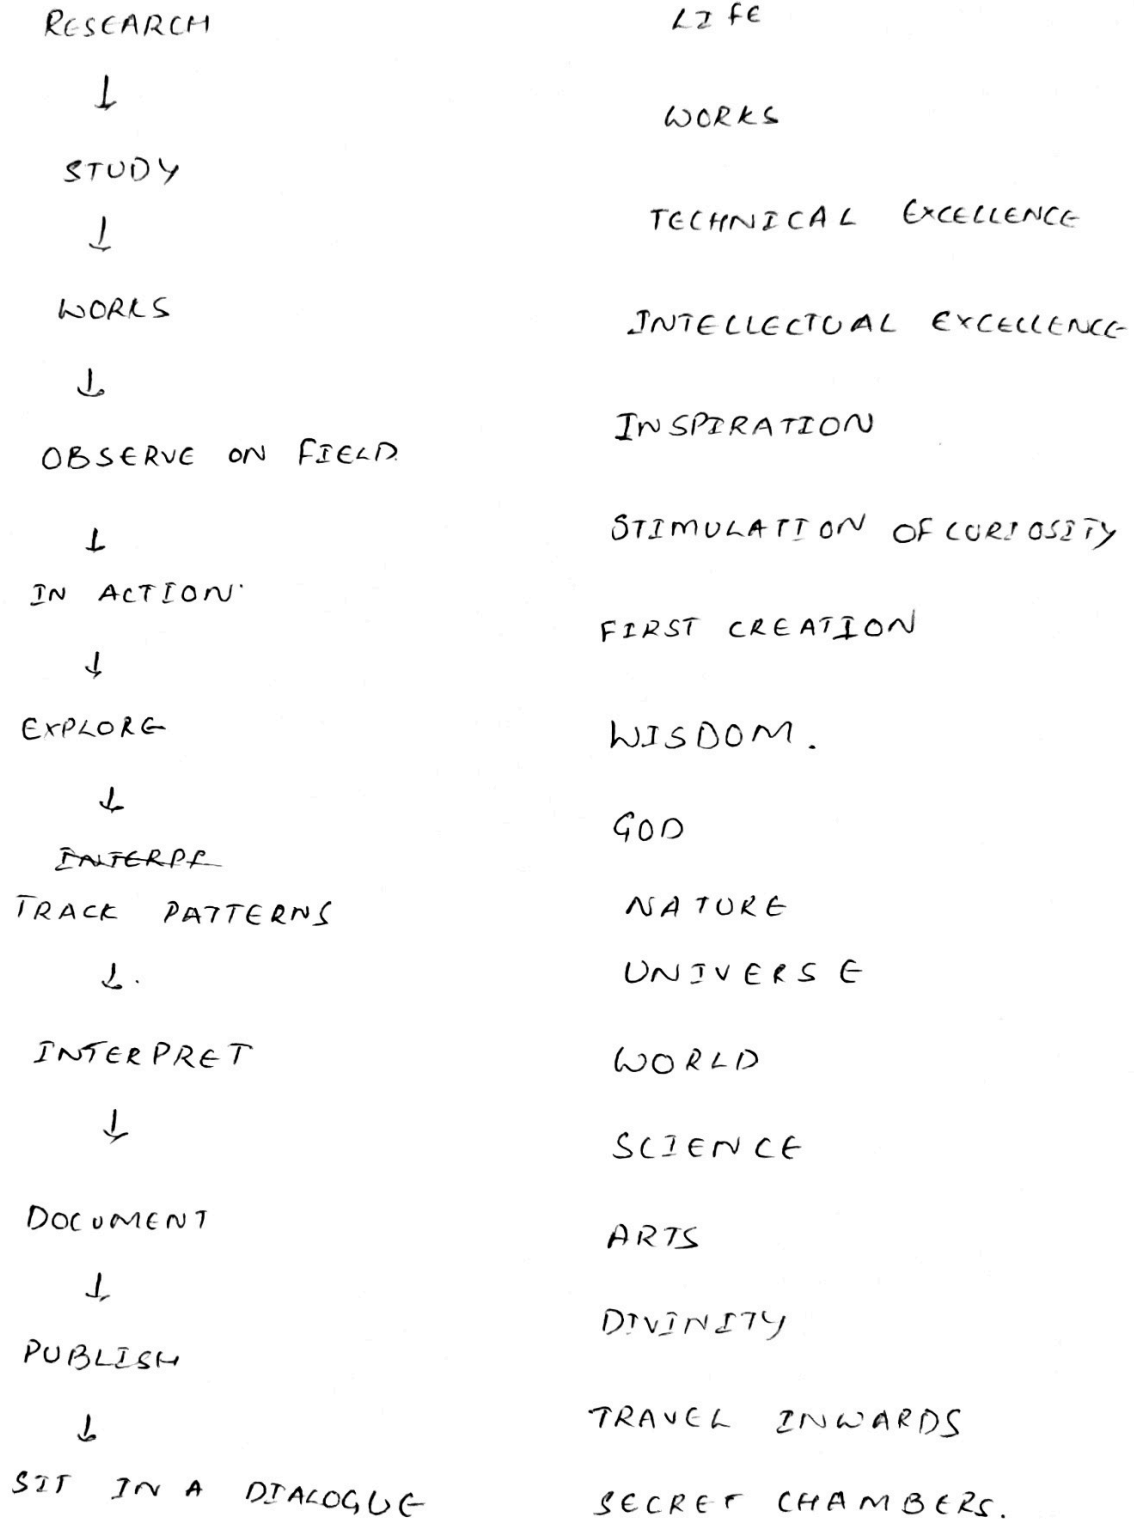 RESEARCH
↓
STUDY
↓
WORKS
↓
OBSERVE ON FIELD
↓
IN ACTION
↓
EXPLORE
↓
TRACK PATTERNS
↓
INTERPRET
↓
DOCUMENT
↓
PUBLISH
↓
SIT IN A DIALOGUE
LIFE
WORKS
TECHNICAL EXCELLENCE
INTELLECTUAL EXCELLENCE
INSPIRATION
STIMULATION OF CURIOSITY
FIRST CREATION
WISDOM.
GOD
NATURE
UNIVERSE
WORLD
SCIENCE
ARTS
DIVINITY
TRAVEL INWARDS
SECRET CHAMBERS.